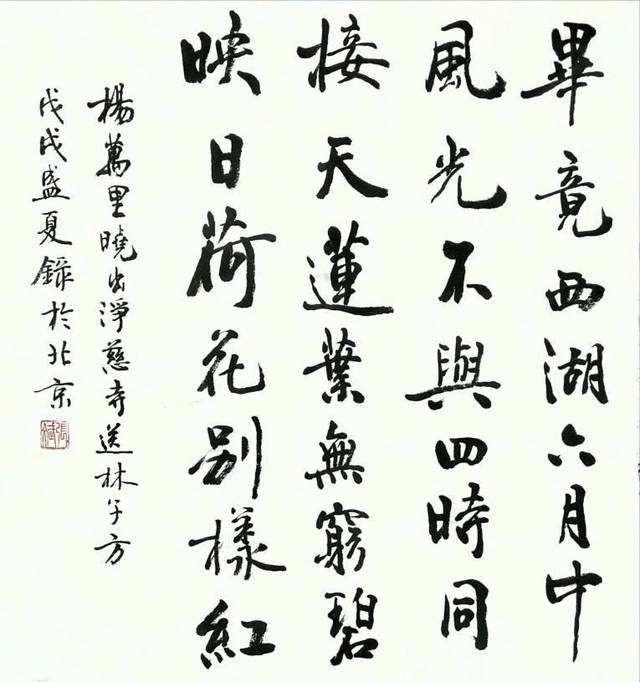 畢竟西湖六月中
風光不與四時同
接天蓮葉無窮碧
映日荷花別樣紅
楊萬里曉出淨慈寺送林子方
戊戌盛夏錄於北京